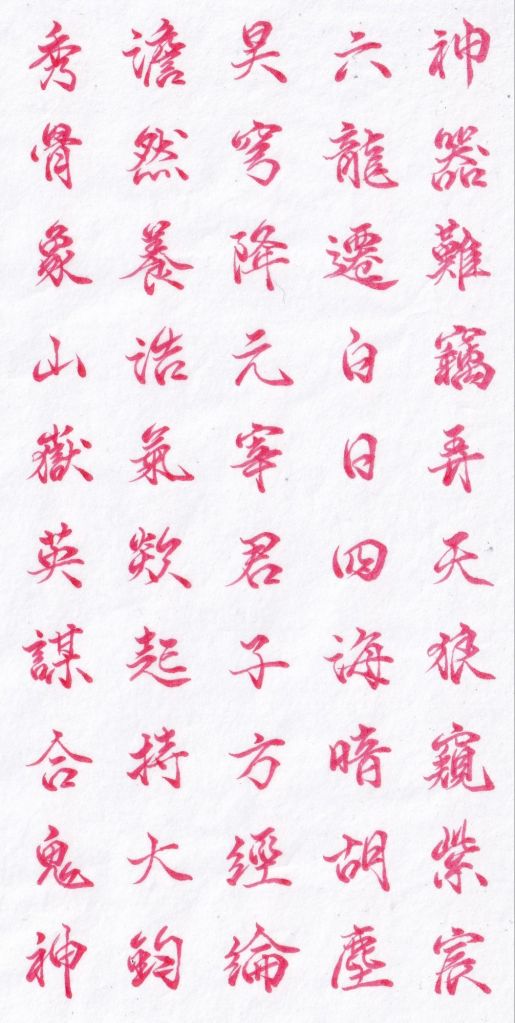 神器難竊弄天狼窺紫宸
六龍遷白日四海暗胡塵
昊穹降元宰君子方經綸
澹然養浩氣欻起持大鈞
秀骨象山嶽英謀合鬼神